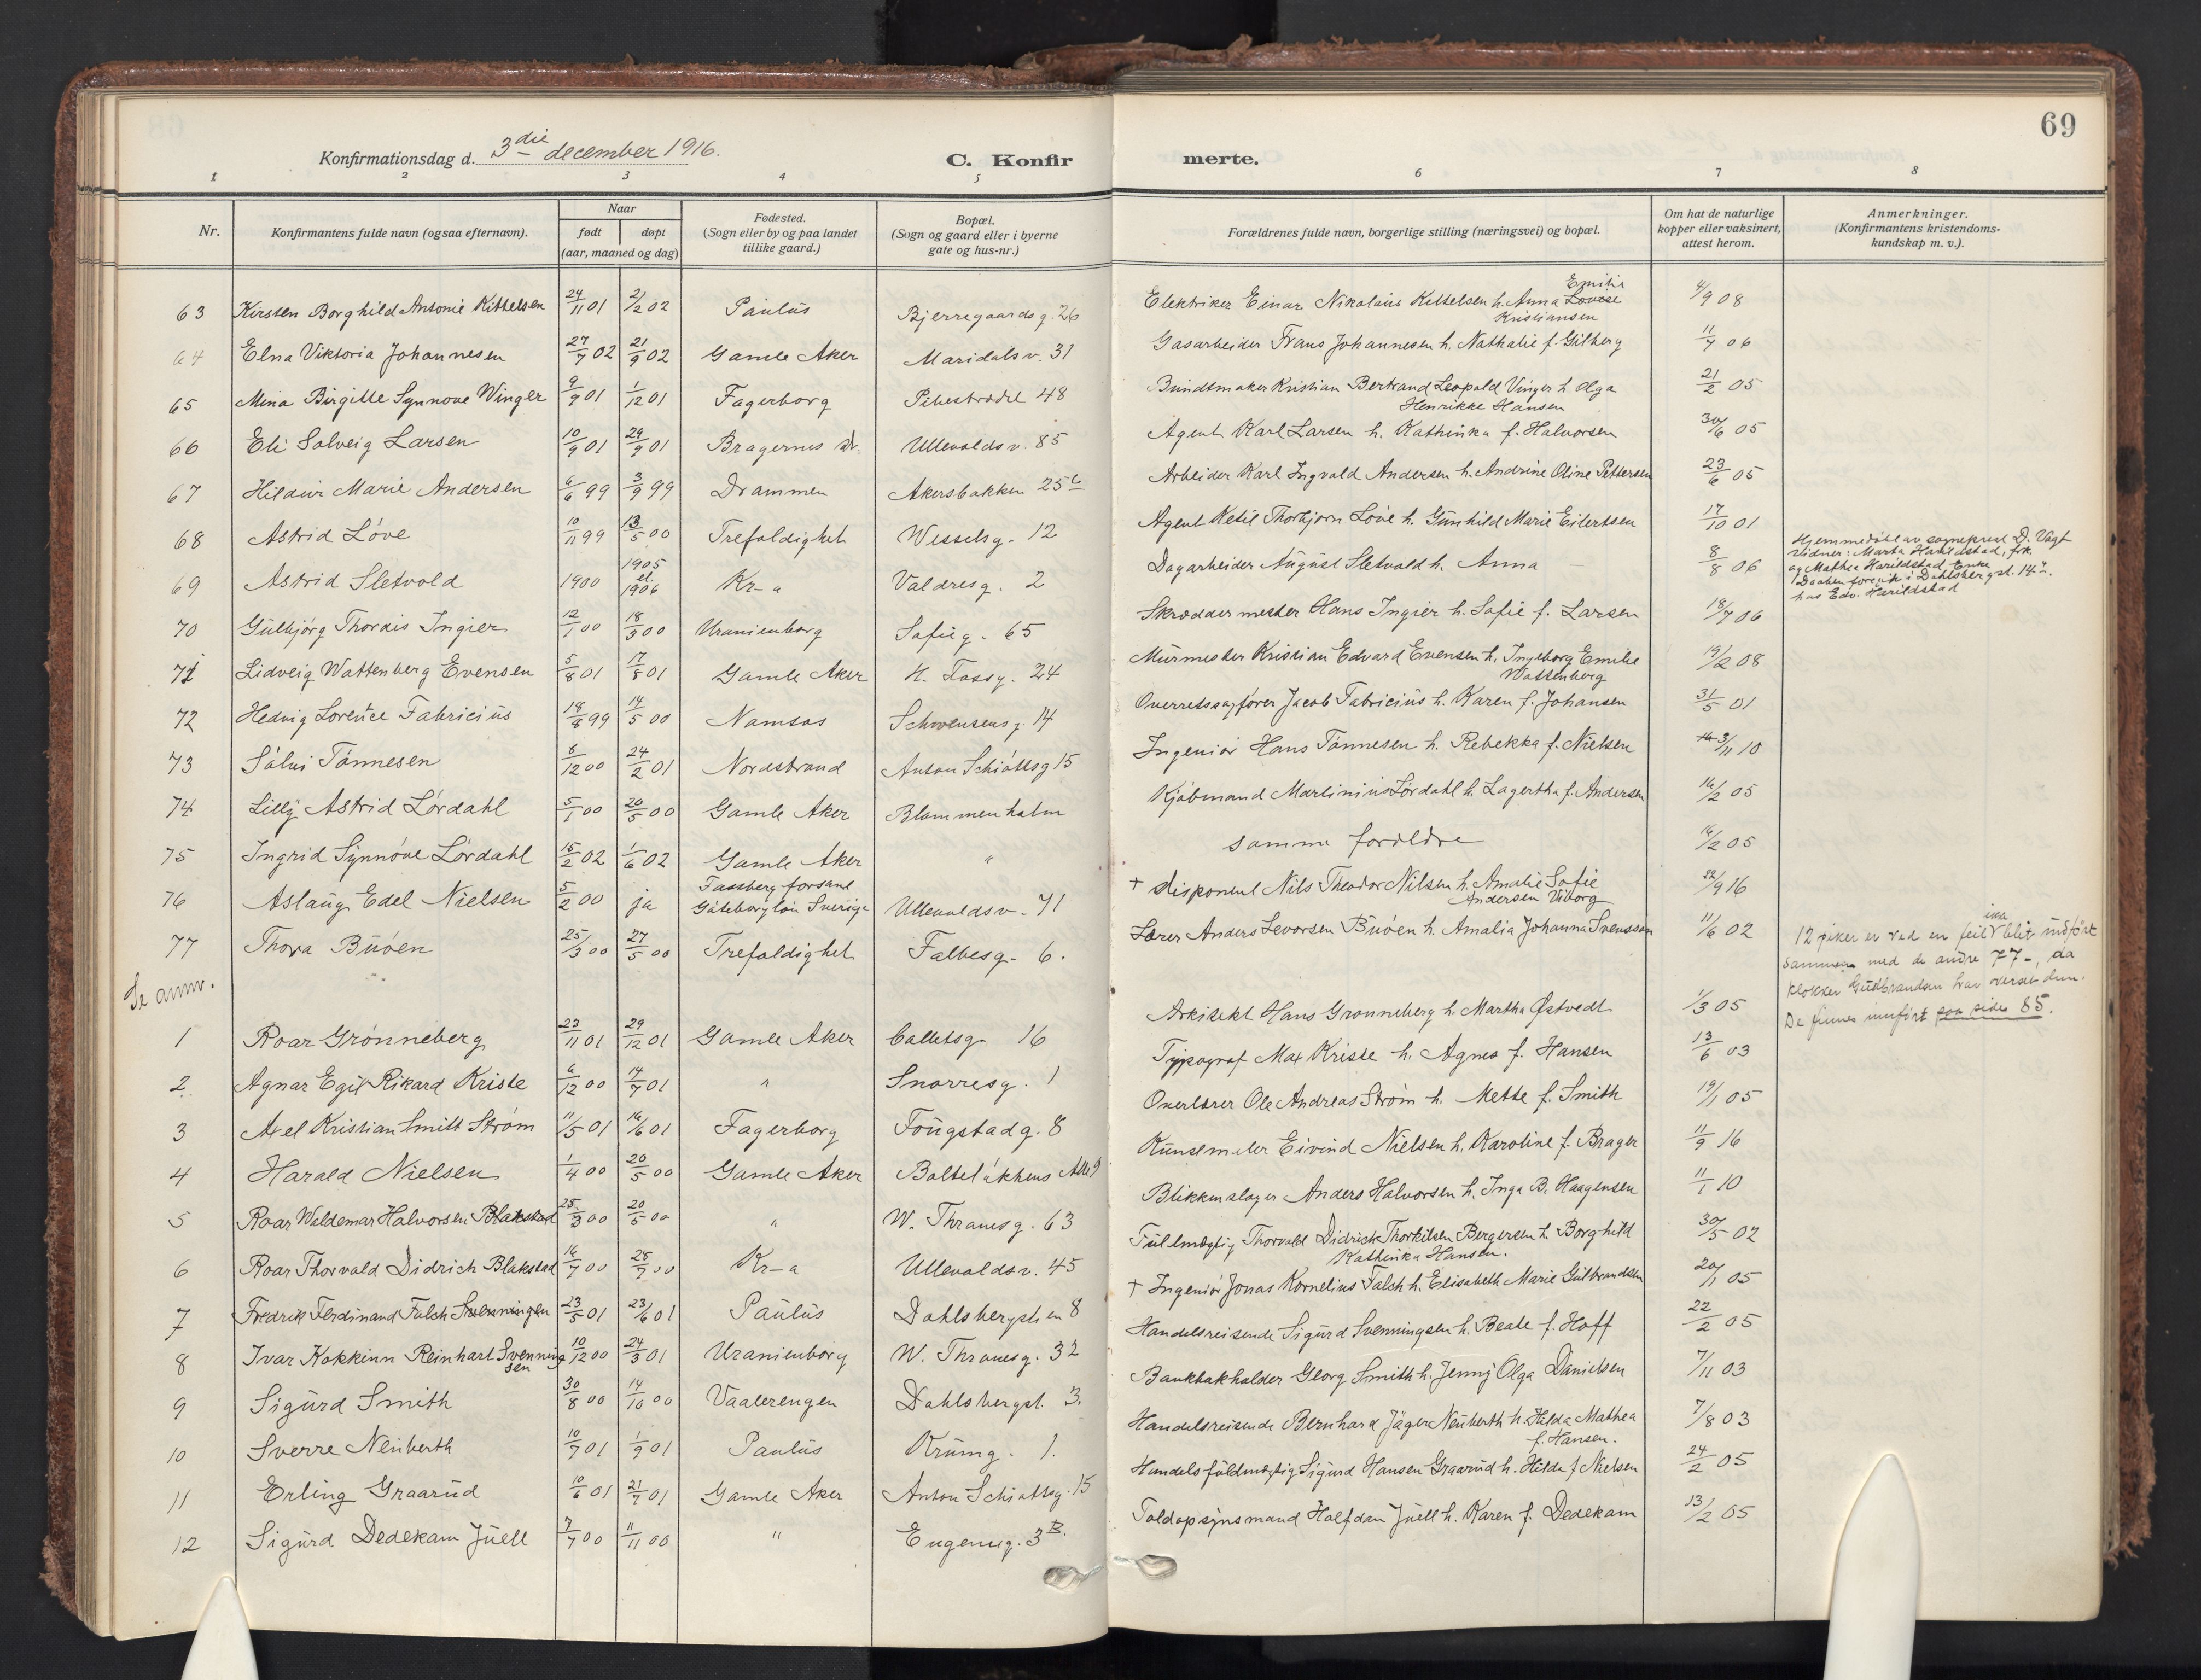 69
Konfirmationsdag d. 3die december 1916.
C. Konfir merte.
1 2 3 4 5 6 7 8
Nr.
Konfirmantens fulde navn (ogsaa efternavn).
Naar
født døpt
(aar, maaned og dag)
Fødested.
(Sogn eller by og paa landet
tillike gaard.)
Bopæl.
(Sogn og gaard eller i byerne
gate og hus-nr.)
Forældrenes fulde navn, borgerlige stilling (næringsvei) og bopæl.
Om hat de naturlige
kopper eller vaksinert,
attest herom.
Anmerkninger.
(Konfirmantens kristendoms-
kundskap m. v.).
63 Kirsten Borghild Antonie Kittelsen 24/11 01 2/2 02 Paulus Bjerregaardsg. 26 Elektriker Einar Nikolaus Kittelsen h. Anna Lovise Emilie Kristiansen 4/9 08
64 Elna Viktoria Johannesen 27/7 02 21/9 02 Gamle Aker Maridalsv. 31 Gasarbeider Frans Johannesen h. Nathalie f. Gilberg 11/7 06
65 Mina Birgitte Synnove Winger 9/9 01 1/12 01 Fagerborg Pilestrædet 48 Bundtmaker Kristian Bertrand Leopold Vinger h. Olga Henrikke Hansen 21/2 05
66 Eli Solveig Larsen 10/9 01 29/9 01 Bragernes Dr. Ullevoldsv. 85 Agent Karl Larsen h. Kathinka f. Halvorsen 30/6 05
67 Hildur Marie Andersen 6/6 99 3/9 99 Drammen Akersbakken 25 c Arbeider Karl Ingvald Andersen h. Andrine Oline Pettersen 23/6 05
68 Astrid Løve 10/11 99 13/5 00 Trefoldighet Wesselsg. 12 Agent Ketil Thorbjørn Løve h. Gunhild Marie Eilertsen 17/10 01
69 Astrid Sletvold 1900 1905 el. 1906 Kr-a Valdresg. 2 Dagarbeider August Sletvold h. Anna — 8/8 06
Hjemmedøbt av sogneprest D. Vogt
Vidner: Marta Harildstad, frk.
og Mathea Harildstad Enke
Daaben foregik i Dahlsbergst. 14
hos Edv. Harildstad
70 Gulbjörg Thordis Ingier 12/1 00 18/3 00 Uranienborg Sofieg. 65 Skræddermester Hans Ingier h. Sofie f. Larsen 18/7 06
71 Lidveig Wattenberg Evensen 5/8 01 17/8 01 Gamle Aker K. Fossg. 24 Murmester Kristian Edvard Evensen h. Ingeborg Emilie Wattenberg 19/2 08
72 Hedvig Lorentze Fabricius 18/8 99 14/5 00 Namsos Schwensensg. 14 Overretssagfører Jacob Fabricius h. Karen f. Johansen 31/5 01
73 Sølvi Tønnesen 8/12 00 24/2 01 Nordstrand Anton Schiøttsg 15 Ingeniør Hans Tønnesen h. Rebekka f. Nielsen 3/11 10
74 Lilly Astrid Lørdahl 5/1 00 20/5 00 Gamle Aker Blommenholm Kjøbmand Martinius Lørdahl h. Lagertha f. Andersen 16/2 05
75 Ingrid Synnøve Lørdahl 15/2 02 1/6 02 Gamle Aker " samme forældre 16/2 05
76 Aslaug Edel Nielsen 5/2 00 ja Fassberg forsaml Gøteborg län Sverige Ullevoldsv. 71 + disponent Nils Theodor Nilsen h. Amalie Sofie Andersen Viborg 22/9 16
77 Thora Buøen 25/3 00 27/5 00 Trefoldighet Falbesg. 6. Lærer Anders Levorsen Buøen h. Amalia Johanna Svensson 11/6 02
Se anm.
12 piker er ved en feil ikke blit indført
sammen med de andre 77, da
klokker Gudbrandsen har overset dem.
De finnes innført paa side 85.
1 Roar Grønneberg 23/11 01 29/12 01 Gamle Aker Colletsg 16 Arkitekt Hans Grønneberg h. Martha Østvedt 1/3 05
2. Agnar Egil Rikard Kriste 6/12 00 14/7 01 " Snorresg. 1 Typograf Max Kriste h. Agnes f. Hansen 13/6 03
3 Axel Kristian Smitt Strøm 11/5 01 16/6 01 Fagerborg Fougstadg. 8 Overlærer Ole Andreas Strøm h. Mette f. Smith 19/1 05
4 Harald Nielsen 1/4 00 20/5 00 Gamle Aker Bolteløkkens Alle 9 Kunstmaler Eivind Nielsen h. Karoline f. Brager 11/9 16
5 Roar Waldemar Halvorsen Blakstad 25/3 00 20/5 00 " W. Thranesg. 63 Blikkenslager Anders Halvorsen h. Inga B. Haagensen 11/1 10
6 Roar Thorvald Didrich Blakstad 16/7 00 28/7 00 Kr-a Ullevoldsv. 45 Fullmægtig Thorvald Didrich Thorkilsen Bergersen h. Borghild Kathinka Hansen. 30/5 02
7 Fredrik Ferdinand Falch Svenningen 23/5 01 23/6 01 Paulus Dahlsbergstien 8 + Ingeniør Jonas Kornelius Falch h. Elisabeth Marie Gulbrandsen 20/1 05
8 Ivar Kokkinn Reinhart Svenningsen 10/12 00 24/3 01 Uranienborg W. Thranesg. 32 Handelsreisende Sigurd Svenningsen h. Beate f. Hoff 22/2 05
9 Sigurd Smith 30/8 00 14/10 00 Vaalerengen Dahlsbergst. 3. Bankbokholder Georg Smith h. Jenny Olga Danielsen 7/11 03
10 Sverre Neuberth 10/7 01 1/9 01 Paulus Krumg. 1. Handelsreisende Bernhard Jäger Neuberth h. Hilda Mathea f. Hansen. 7/8 03
11 Erling Graarud 10/6 01 21/7 01 Gamle Aker Anton Schiøttsg. 15 Handelsfuldmægtig Sigurd Hansen Graarud h. Hilda f Nielsen 24/2 05
12 Sigurd Dedekam Juell 7/7 00 11/11 00 " Eugeneg. 3 B. Toldopsynsmand Halfdan Juell h. Karen f. Dedekam 13/2 05